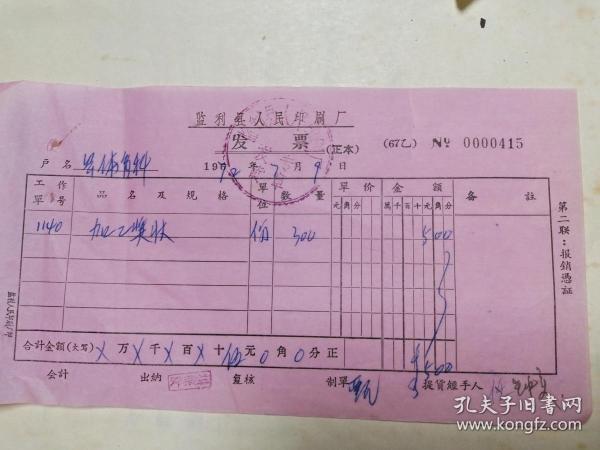 监利县人民印刷厂
发票(正本)
(67乙) № 0000415
户名 1972年7月9日
工作單号 品名及規格 單位 数量 單价 金額 备註
元角分 萬千百十元角分
1140 加工奖状 份 300 500
合計金額(大写) X万X千X百X十伍元0角0分正 500
会計 出納 复核 制單 提貨經手人
第二联：报销憑証
孔夫子旧书网
www.kongfz.com